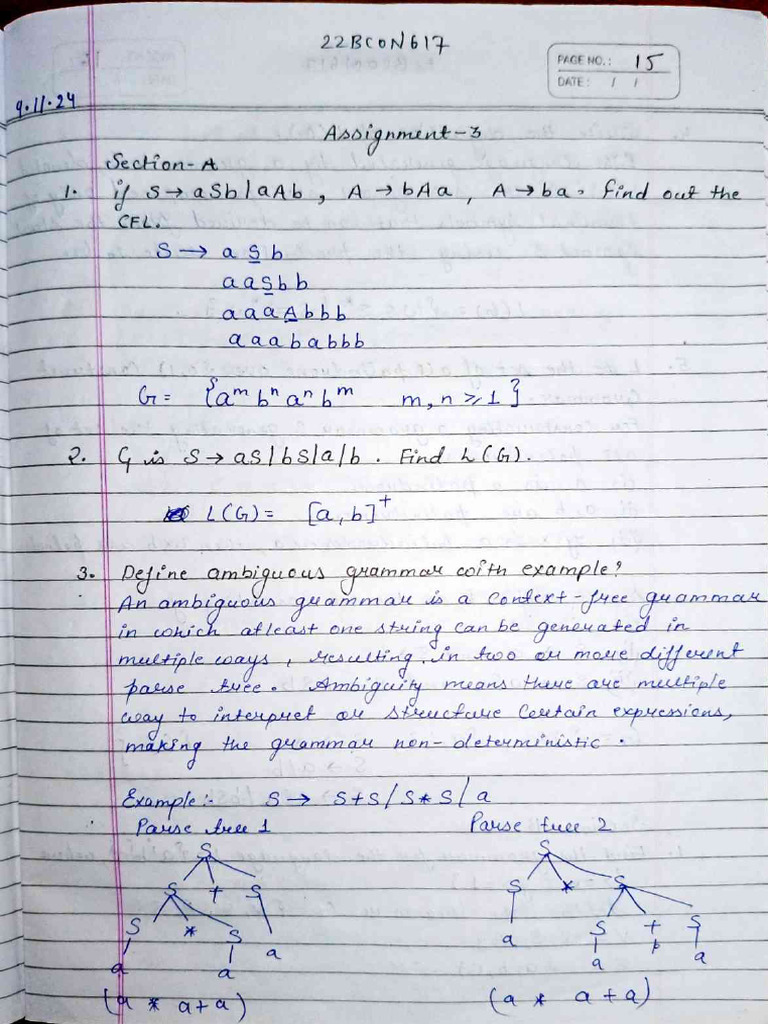 22BCON617
PAGE NO.: 15
DATE: / /
9.11.24
Assignment-3
Section-A
1. if S → aSb|aAb, A → bAa, A → ba. Find out the
CFL.
S → a S b
a a S b b
a a a A b b b
a a a b a b b b
G = {a^m b^n a^n b^m m, n ⩾ 1}
2. G is S → aS/bS/a/b. Find L(G).
L(G) = [a, b]^+
3. Define ambiguous grammar with example?
An ambiguous grammar is a context-free grammar
in which atleast one string can be generated in
multiple ways, resulting in two or more different
parse tree. Ambiguity means there are multiple
way to interpret or structure certain expressions,
making the grammar non-deterministic.
Example:- S → S+S/S*S/a
Parse tree 1 Parse tree 2
S S
S + S S * S
S * S a a S + S
a a a a
(a * a+a) (a * a+a)